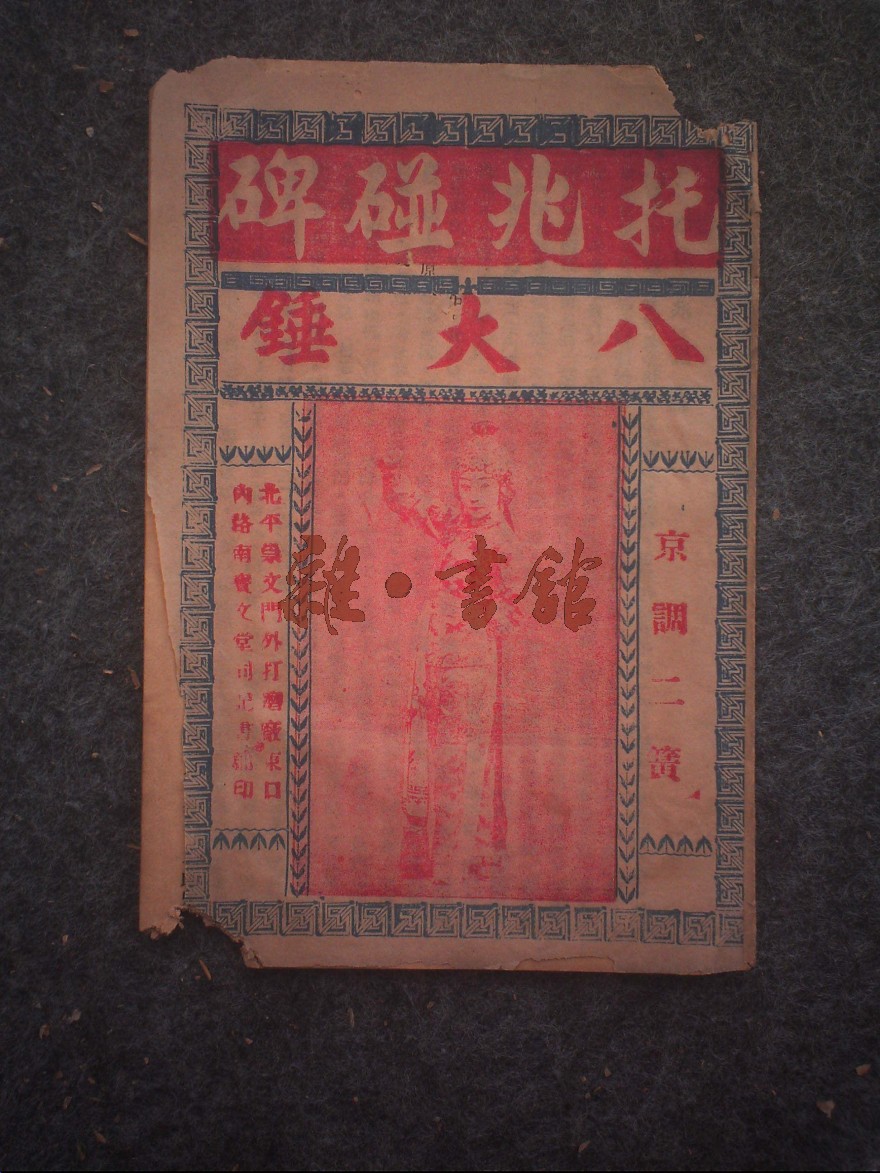 托兆碰碑
八大錘
京調二簧
北平崇文門外打磨廠東口
內路南寶文堂同記書鋪印
雜·書館